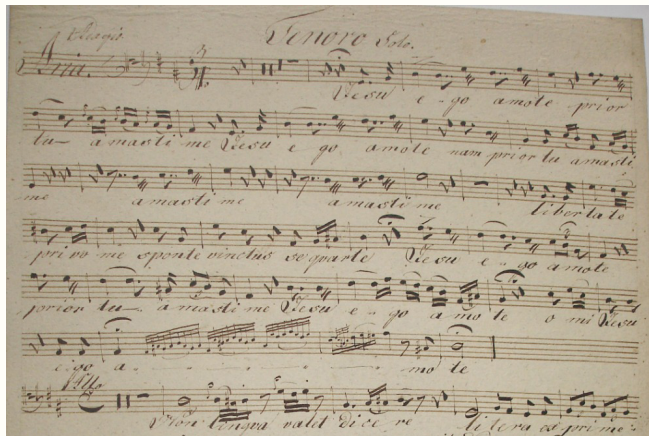 Adagio Tenoro Solo.
Aria.
Jesu e-go amote prior
tu amasti me Jesu e go amote nam prior tu amasti
me amasti me amasti me libertate
privo me sponte vinctus Jesu e-go amote
prior tu amasti me Jesu e-go amote o mi Jesu
ego a- mo te
Non lingva valet dicere litera exprime: